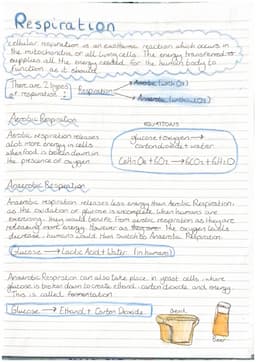 Respiration
Cellular respiration is an exothermic reaction which occurs in
the mitochondria of all living cells. The energy transferred
supplies all the energy needed for the human body to
function as it should.
There are 2 types
of respiration:
Respiration
Aerobic (with O2)
Anaerobic (without O2)
Aerobic Respiration
Aerobic respiration releases
alot more energy in cells
when food is broken down in
the presence of oxygen
EQUATIONS
glucose + oxygen →
carbon dioxide + water
C6H12O6 + 6O2 → 6CO2 + 6H2O
Anaerobic Respiration
Anaerobic respiration releases less energy than Aerobic Respiration
as the oxidation of glucose is incomplete. When humans are
exercising, they would benefit from aerobic respiration as they are
releasing more energy. However as the oxygen levels
decrease, humans would then switch to Anaerobic Respiration
Glucose → Lactic Acid + Water (in humans)
Anaerobic Respiration can also take place in yeast cells, where
glucose is broken down to create ethanol, carbon dioxide and energy
This is called fermentation
Glucose → Ethanol + Carbon Dioxide
bread
beer